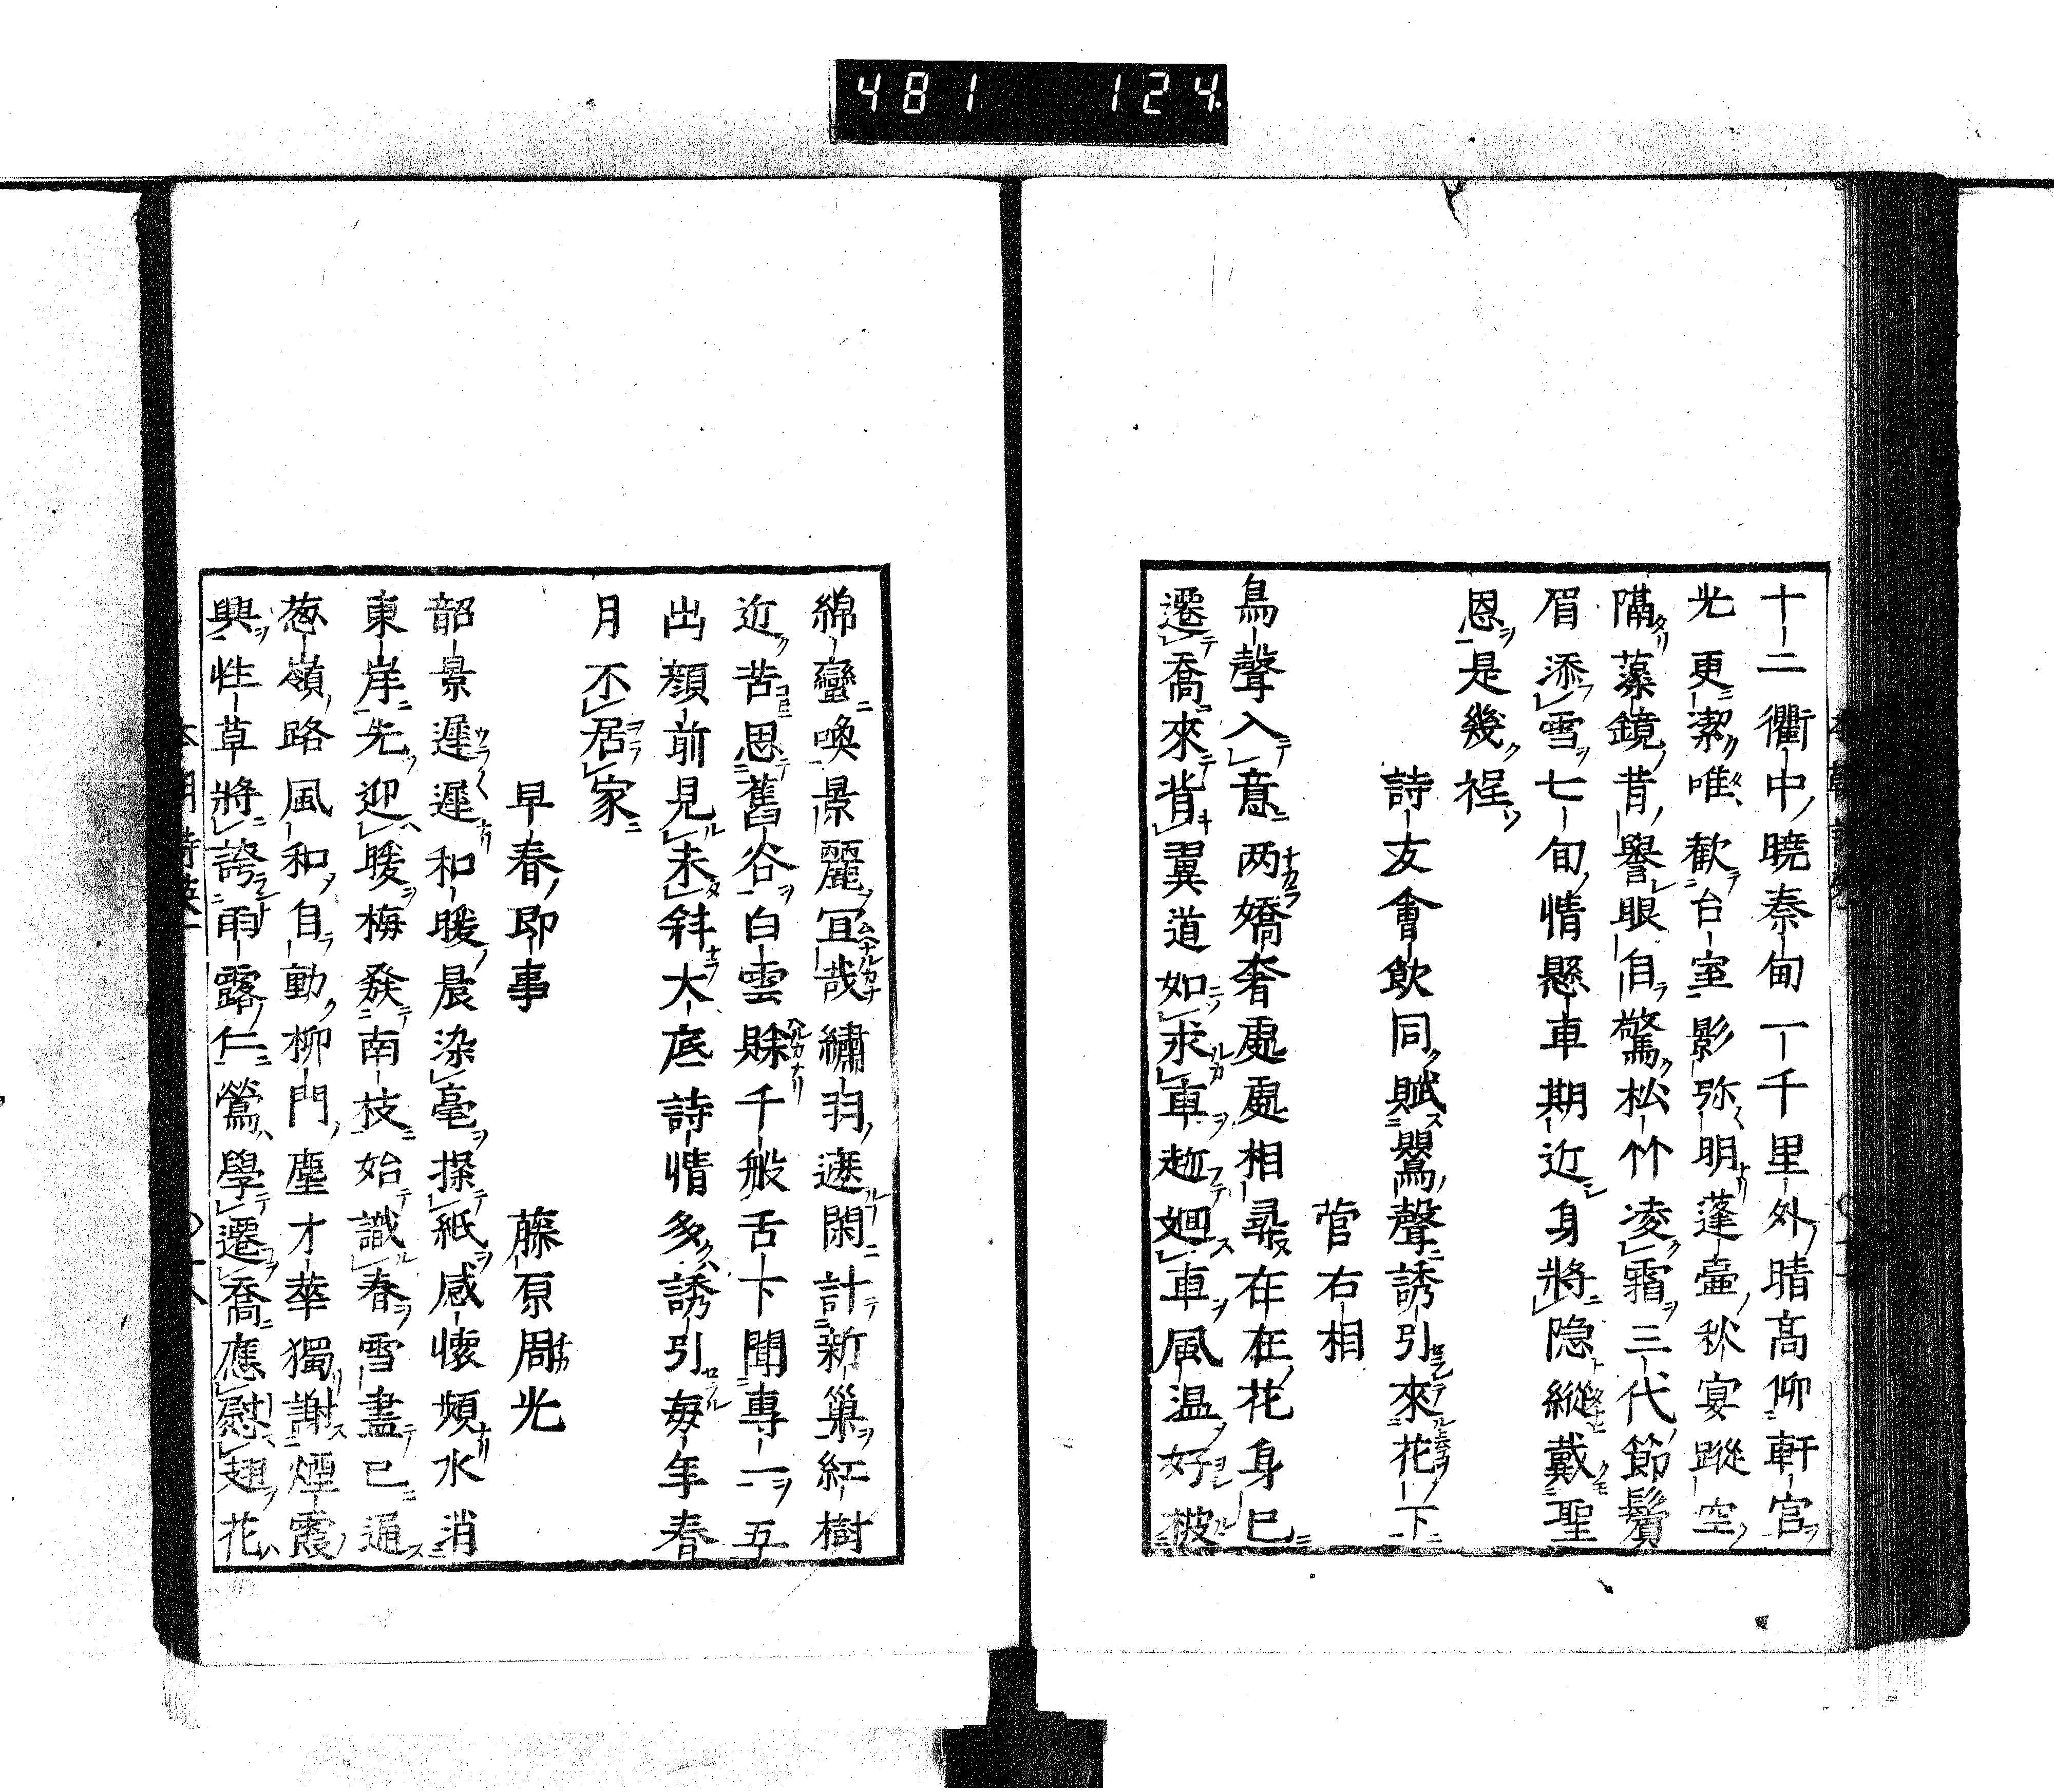 481 124
十二衢中曉秦甸一千里外晴高仰軒宮
光更潔唯歡台室影弥明蓬臺秋宴蹤空
隔藻鏡昔譽眼自驚松竹凌霜三代節鬢
眉添雪七旬情懸車期近身將隠縱戴聖
恩是幾程
詩友會飲同賦鸎聲誘引來花下
菅右相
鳥聲入意两嬌奢處處相尋在在花身已
遷喬來背翼道如求車趂廻車風温好被
綿蠻喚景麗宜哉繡羽遊閑計新巢紅樹
近苦思舊谷白雲賖千般舌下聞專一五
出顔前見未斜大底詩情多誘引毎年春
月不居家
早春即事
藤原周光
韶景遲遲和暖晨染毫操紙感懐頻水消
東岸先迎暖梅發南枝始識春雪盡已通
葱嶺路風和自動柳門塵才華獨謝煙霞
興性草將誇雨露仁鶯學遷喬應慰翅花